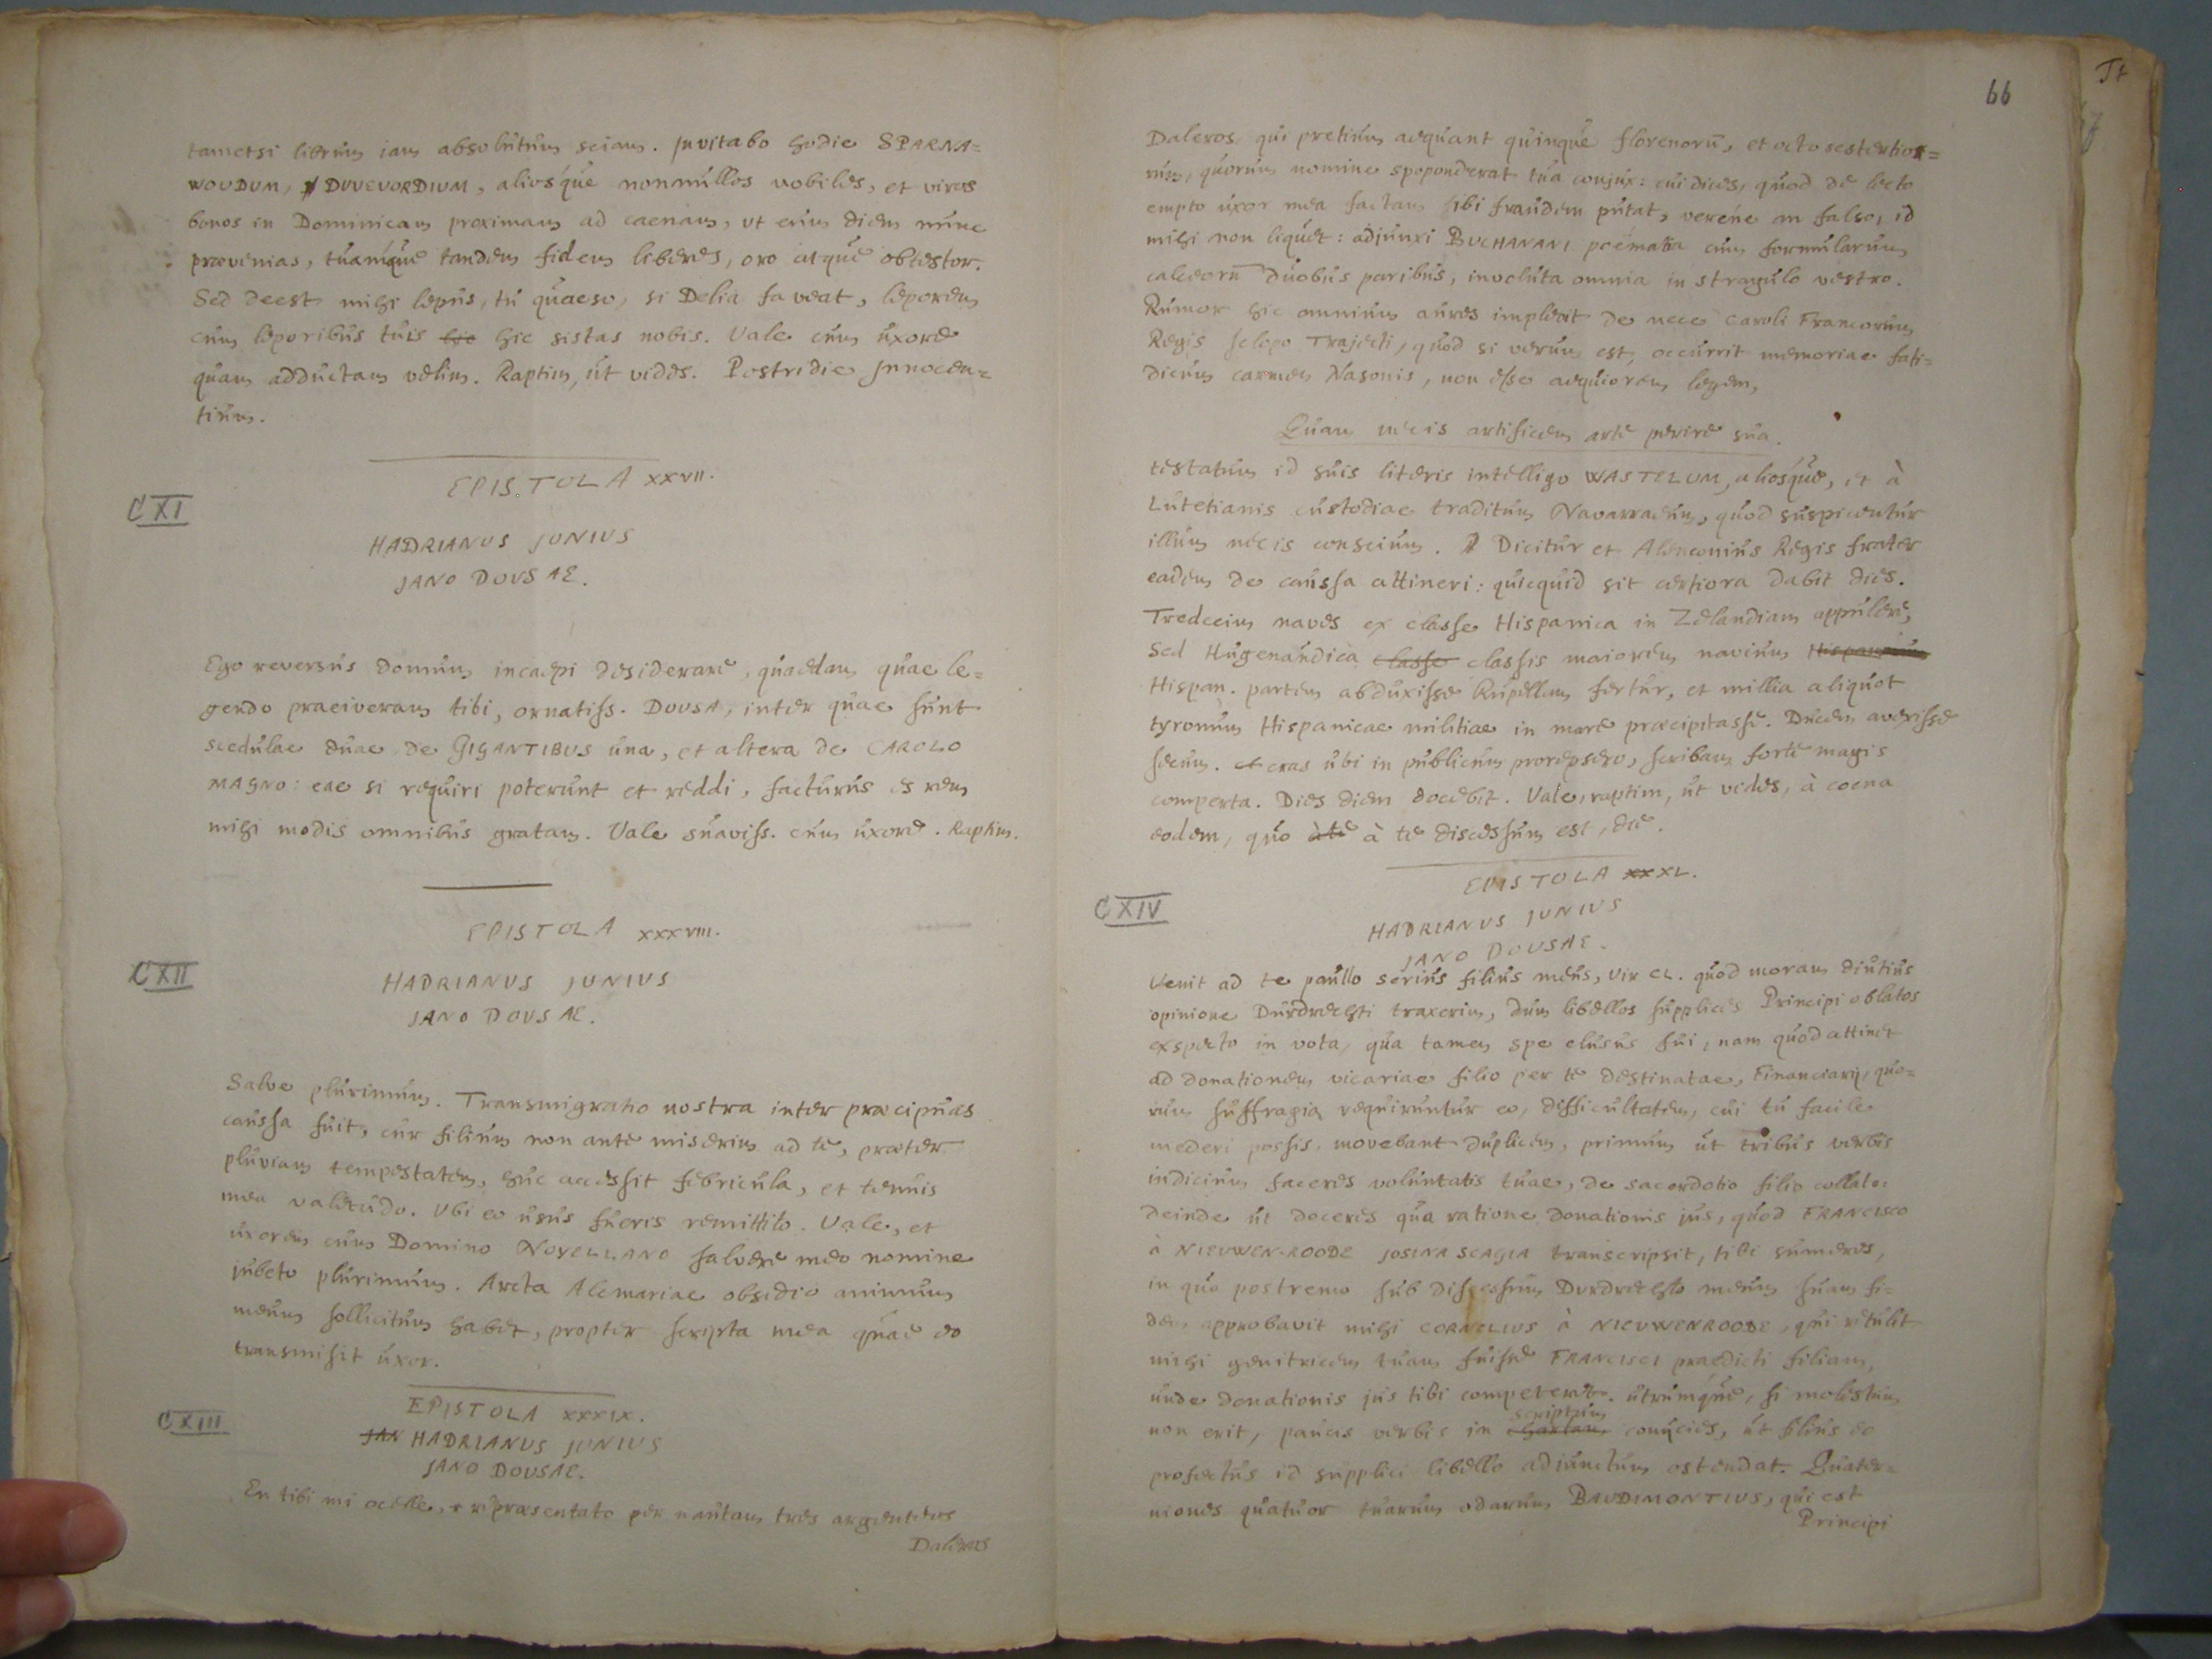 tametsi librum iam absolutum sciam. Juvitabo hodie SPARNA=
WOUDUM, DUVEVORDIUM, aliosque nonnullos nobiles, et viros
bonos in Dominicam proximam ad caenam, ut eum diem nunc
praevenias, tuamque tandem fidem liberes, oro atque obtestor.
Sed deest mihi lepus, tu quaeso, si Delia faveat, leporem
cum leporibus tuis hic hic sistas nobis. Vale cum uxore
quam adductam velim. Raptim, ut vides. Postridie Jnnocen=
tium.
EPISTOLA XXXVII.
CXI
HADRIANUS JUNIUS
JANO DOUSAE.
Ego reversus domum incaepi desiderare, quaedam quae le=
gendo praeiveram tibi, ornatiss. DOUSA, inter quae sunt
scedulae duae de GIGANTIBUS una, et altera de CAROLO
MAGNO: eae si requiri poterunt et reddi, facturus es rem
mihi modis omnibus gratam. Vale suaviss. cum uxore. Raptim.
EPISTOLA XXXVIII.
CXII
HADRIANUS JUNIUS
JANO DOUSAE.
Salve plurimum. Transmigratio nostra inter praecipuas
caussa fuit, cur filium non ante miserim ad te, praeter
pluviam tempestatem, huc accessit febricula, et tenuis
mea valetudo. Ubi eo usus fueris remittito. Vale, et
uxorem cum Domino NOVELLANO salvere meo nomine
jubeto plurimum. Arcta Alcmariae obsidio animum
meum sollicitum habet, propter scripta mea quae eo
transmisit uxor.
EPISTOLA XXXIX.
CXIII
JAN HADRIANUS JUNIUS
JANO DOUSAE.
En tibi mi ocelle, repraesentato per nautam tres argenteos
Daleros
66
Daleros qui pretium aequant quinque florenorū, et octo sestertior=
rum, quorum nomine spoponderat tua conjux: cui dices, quod de lecto
empto uxor mea factam sibi fraudem putat, verene an falso, id
mihi non liquet: adjunxi BUCHANANI poëmata cum formularum
calceorū duobus paribus, involuta omnia in stragulo vestro.
Rumor hic omnium aures implevit de nece Caroli Francorum
Regis sclopo Trajecti, quod si verum est, occurrit memoriae fati=
dicum carmen Nasonis, non esse aequiorem legem,
Quam necis artificem arte perire sua.
testatum id suis literis intelligo WASTELUM, aliosque, et à
Lutetianis custodiae traditum Navarraeum, quod suspicentur
illum necis conscium. Dicitur et Alenconius Regis frater
eadem de caussa attineri: quicquid sit certiora dabit dies.
Tredecim naves ex classe Hispanica in Zelandiam appulere,
Sed Hugenaudica classe classis maiorem navium Hispanicum
Hispan. partem abduxisse Rupellam fertur, et millia aliquot
tyronum Hispanicae militiae in mare praecipitasse. Ducem avexisse
secum. et cras ubi in publicum prorepsero, scribam forte magis
comperta. Dies diem docebit. Vale, raptim, ut vides, à coena
eodem, quo à te à te discessum est, die.
EPISTOLA XX XL.
CXIV
HADRIANUS JUNIUS
JANO DOUSAE.
Venit ad te paullo serius filius meus, vir CL. quod moram diutius
opinione Durdrechti traxerim, dum libellos supplices Principi oblatos
exspecto in vota, qua tamen spe elusus fui, nam quod attinet
ad donationem vicariae filio per te destinatae, Financiarij, quo=
rum suffragia requiruntur eo, difficultatem, cui tu facile
mederi possis, movebant duplicem, primum ut tribus verbis
indicium faceres voluntatis tuae, de sacerdotio filio collato:
deinde ut doceres qua ratione donationis jus, quod FRANCISCO
à NIEUWEN-ROODE JOSINA SCAGIA transcripsit, tibi sumeres,
in quo postremo sub discessum Durdrechto meum suam fi=
dem approbavit mihi CORNELIUS à NIEUWENROODE, qui retulit
mihi genitricem tuam fuisse FRANCISCI praedicti filiam,
unde donationis jus tibi competeret. utrumque, si molestum
scriptum
non erit, paucis verbis in chartam conijcies, ut filius eo
profectus id supplici libello adjunctum ostendat. Quater=
niones quatuor tuarum odarum BAUDIMONTIUS, qui est
Principi